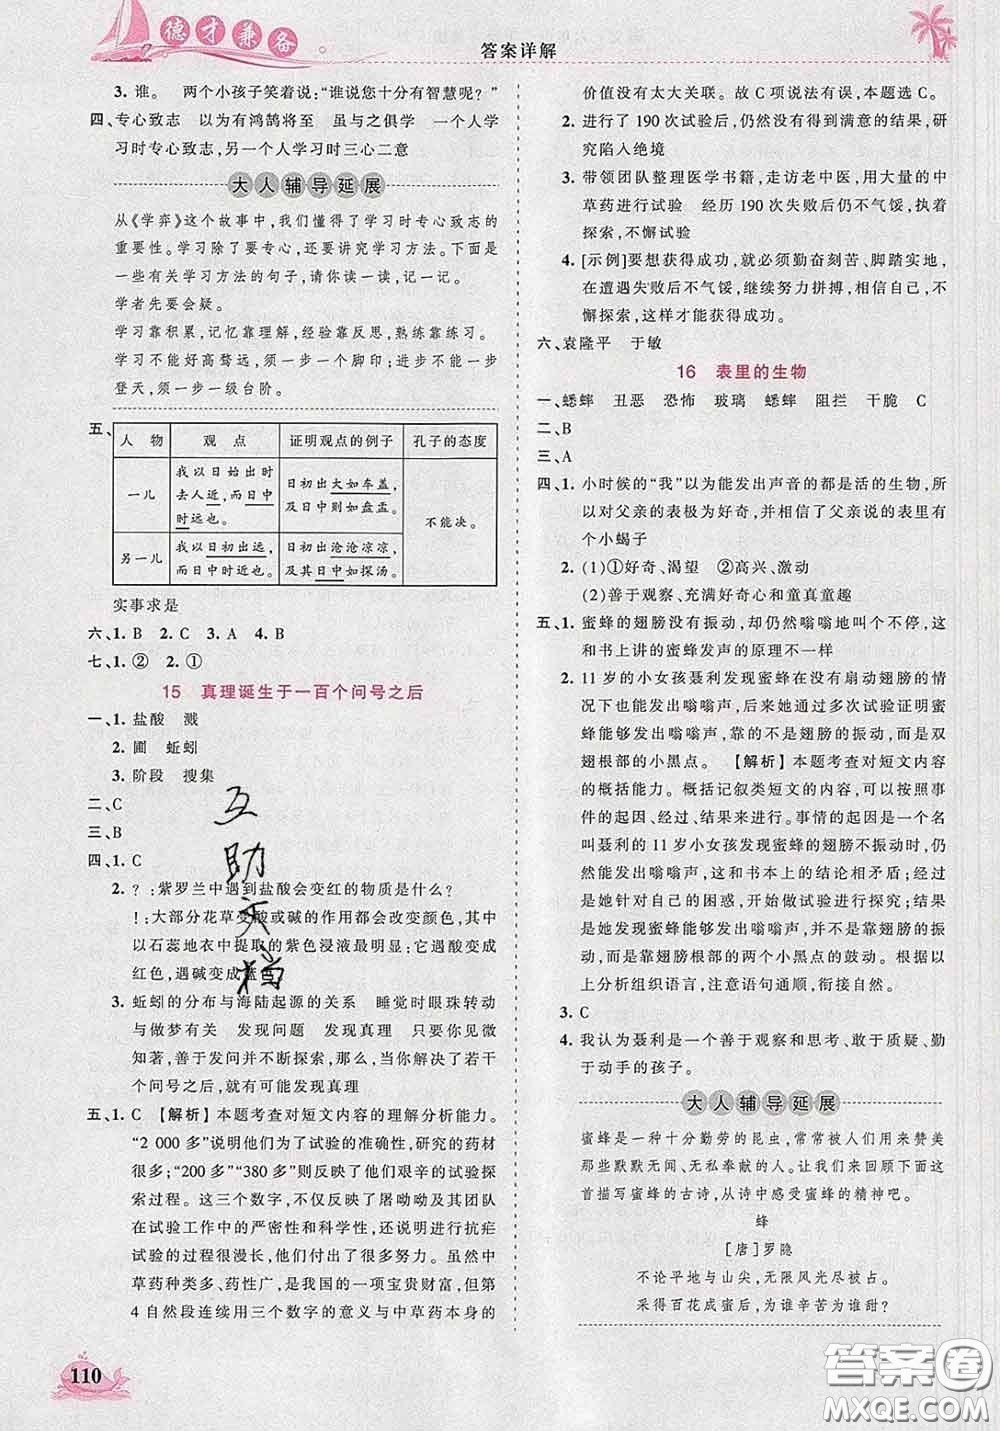 德才兼备
答案详解
3. 谁。 两个小孩子笑着说:“谁说您十分有智慧呢?”
四、专心致志 以为有鸿鹄将至 虽与之俱学 一个人学
习时专心致志,另一个人学习时三心二意
大人辅导延展
从《学弈》这个故事中,我们懂得了学习时专心致志的
重要性。学习除了要专心,还要讲究学习方法。下面是
一些有关学习方法的句子,请你读一读,记一记。
学者先要会疑。
学习靠积累,记忆靠理解,经验靠反思,熟练靠练习。
学习不能好高骛远,须一步一个脚印;进步不能一步
登天,须一步一级台阶。
五、
人 物 观 点 证明观点的例子 孔子的态度
一儿 我以日始出时去人近,而日中时远也。 日初出大如车盖,及日中则如盘盂。 不能决。
另一儿 我以日初出远,而日中时近也。 日初出沧沧凉凉,及其日中如探汤。
实事求是
六、1. B 2. C 3. A 4. B
七、1. ② 2. ①
15 真理诞生于一百个问号之后
一、1. 盐酸 溅
2. 圃 蚯蚓
3. 阶段 搜集
二、C
三、B
四、1. C
2. ?:紫罗兰中遇到盐酸会变红的物质是什么?
!:大部分花草受酸或碱的作用都会改变颜色,其中
以石蕊地衣中提取的紫色浸液最明显;它遇酸变成
红色,遇碱变成蓝色
3. 蚯蚓的分布与海陆起源的关系 睡觉时眼珠转动
与做梦有关 发现问题 发现真理 只要你见微
知著,善于发问并不断探索,那么,当你解答了若干
个问号之后,就有可能发现真理
五、1. C 【解析】本题考查对短文内容的理解分析能力。
“2 000 多”说明他们为了试验的准确性,研究的药材
很多;“200 多”“380 多”则反映了他们艰辛的试验探
索过程。这三个数字,不仅反映了屠呦呦及其团队
在试验工作中的严密性和科学性,还说明进行抗疟
试验的过程很漫长,他们付出了很多努力。虽然中
草药种类多、药性广,是我国的一项宝贵财富,但第
4 自然段连续用三个数字的意义与中草药本身的
互助文档
110
价值没有太大关联。故 C 项说法有误,本题选 C。
2. 进行了 190 次试验后,仍然没有得到满意的结果,研
究陷入绝境
3. 带领团队整理医学书籍,走访老中医,用大量的中
草药进行试验 经历 190 次失败后仍不气馁,执着
探索,不懈试验
4. [示例]要想获得成功,就必须勤奋刻苦、脚踏实地,
在遭遇失败后不气馁,继续努力拼搏,持之以恒,
不懈探索,这样才能获得成功。
六、袁隆平 于敏
16 表里的生物
一、蟋蟀 丑恶 恐怖 玻璃 蟋蟀 阻拦 干脆 C
二、B
三、A
四、1. 小时候的“我”以为能发出声音的都是活的生物,所
以对父亲的表极为好奇,并且相信了父亲说的表里有
个小蝎子
2. (1)①好奇、渴望 ②高兴、激动
(2)善于观察、充满好奇心和童真童趣
五、1. 蜜蜂的翅膀没有振动,却仍然嗡嗡地叫个不停,这
和书上讲的蜜蜂发声的原理不一样
2. 11 岁的小女孩聂利发现蜜蜂在没有扇动翅膀的情
况下也能发出嗡嗡声,之后她通过多次试验证明蜜
蜂能够发出嗡嗡声,靠的不是翅膀的振动,而是双
翅根部的小黑点。 【解析】本题考查对短文内容
的概括能力。概括记叙类短文的内容,可以按照事
件的起因、经过、结果来进行。事情的起因是一个名
叫聂利的 11 岁小女孩发现蜜蜂的翅膀不振动,却
仍然能发出嗡嗡声,这和书本上的结论有矛盾;经
过是她针对自己的困惑,开始做试验进行探究;结
果是她发现蜜蜂能够发出嗡嗡声,并不是翅膀的振
动,而是靠翅膀根部的两个小黑点的鼓动。根据以
上分析组织语言,注意语句通顺,衔接自然。
3. C
4. 我认为聂利是一个善于观察和思考、敢于质疑、勤
于动手的孩子。
大人辅导延展
蜜蜂是一种十分勤劳的昆虫,常常被人们用来赞美
那些默默无闻、无私奉献的人。让我们来阅读下面这
首描写蜜蜂的古诗,从诗中感受蜜蜂的精神吧。
蜂
[唐]罗隐
不论平地与山尖,无限风光尽被占。
采得百花成蜜后,为谁辛苦为谁甜?
答案卷
MXQE.COM